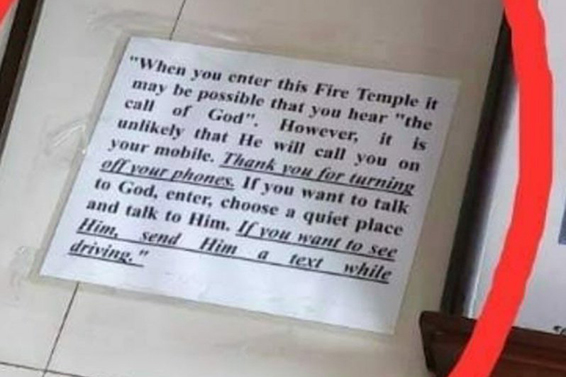 "When you enter this Fire Temple it
may be possible that you hear "the
call of God". However, it is
unlikely that He will call you on
your mobile. Thank you for turning
off your phones. If you want to talk
to God, enter, choose a quiet place
and talk to Him. If you want to see
Him, send Him a text while
driving."